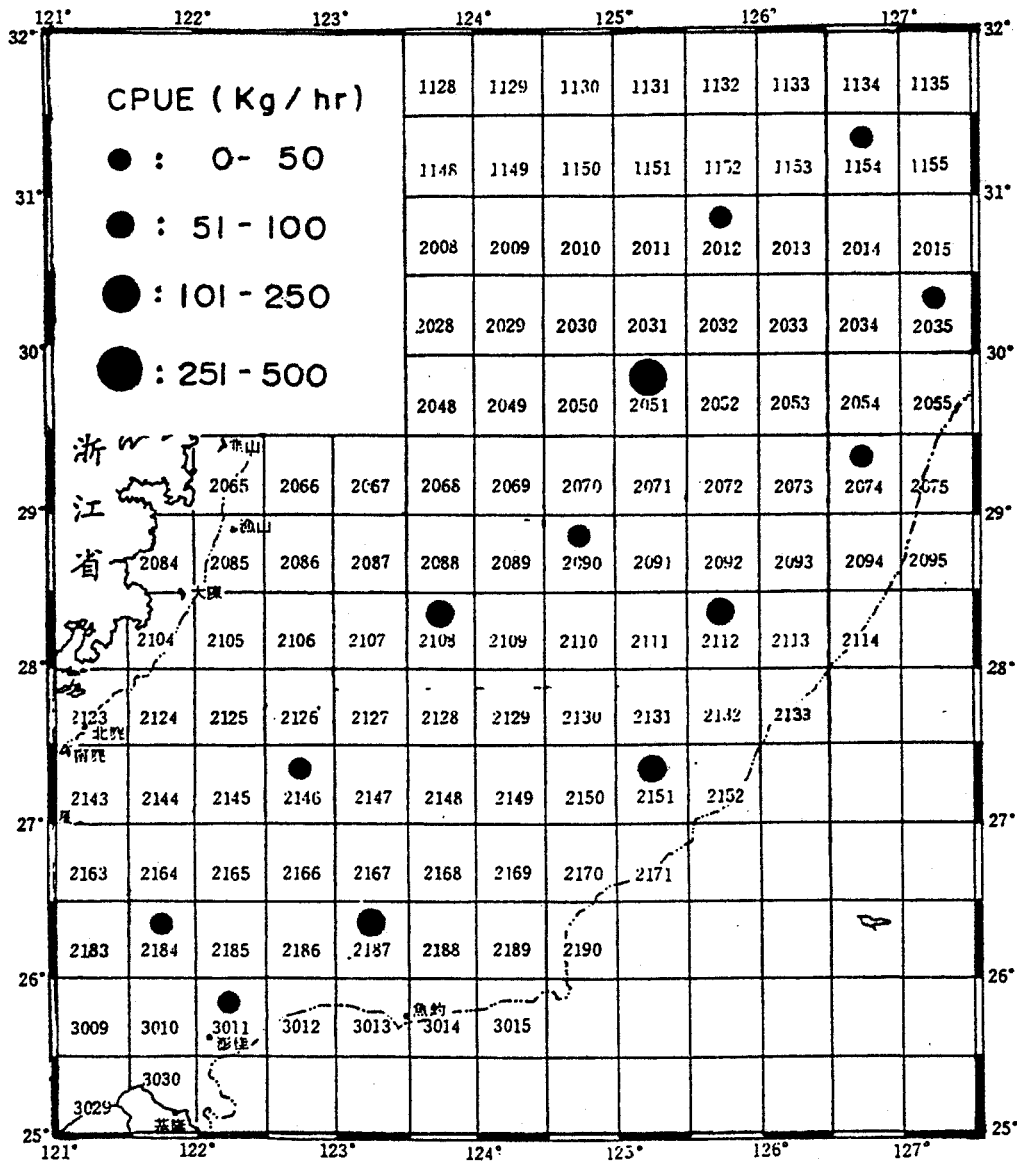 121° 122° 123° 124° 125° 126° 127°
32° 32°
CPUE (Kg/hr)
: 0- 50
: 51-100
: 101-250
: 251-500
1128 1129 1130 1131 1132 1133 1134 1135
1148 1149 1150 1151 1152 1153 1154 1155
31° 31°
2008 2009 2010 2011 2012 2013 2014 2015
2028 2029 2030 2031 2032 2033 2034 2035
30° 30°
2048 2049 2050 2051 2052 2053 2054 2055
浙江省
魚山
2065 2066 2067 2068 2069 2070 2071 2072 2073 2074 2075
29° 29°
漁山
2084 2085 2086 2087 2088 2089 2090 2091 2092 2093 2094 2095
大陳
2104 2105 2106 2107 2108 2109 2110 2111 2112 2113 2114
28° 28°
2123 2124 2125 2126 2127 2128 2129 2130 2131 2132 2133
北麂
南麂
2143 2144 2145 2146 2147 2148 2149 2150 2151 2152
27° 27°
2163 2164 2165 2166 2167 2168 2169 2170 2171
2183 2184 2185 2186 2187 2188 2189 2190
26° 26°
魚釣
3009 3010 3011 3012 3013 3014 3015
彭佳
3030
3029
基隆
25° 25°
121° 122° 123° 124° 125° 126° 127°